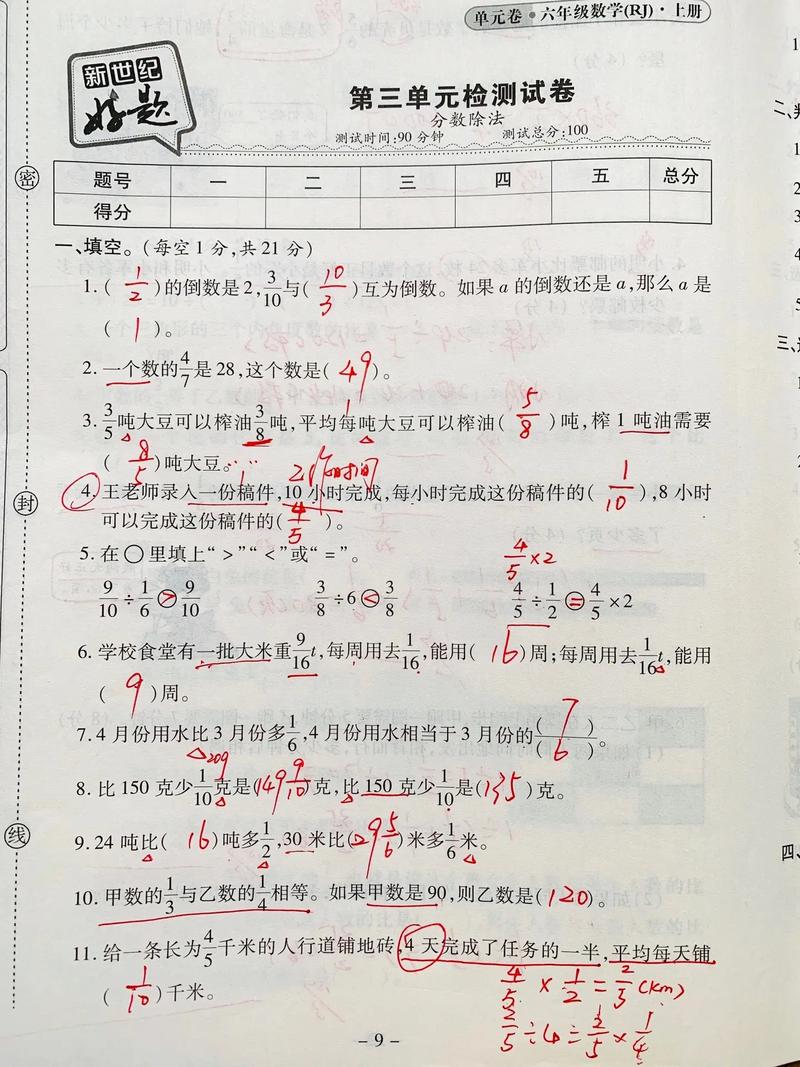 单元卷·六年级数学(RJ)·上册
新世纪
好题
第三单元检测试卷
分数除法
测试时间:90分钟 测试总分:100
题号 一 二 三 四 五 总分
得分
密
封
线
一、填空。(每空1分,共21分)
1. ( 1/2 )的倒数是2, 3/10与( 10/3 )互为倒数。如果a的倒数还是a,那么a是
( 1 )。
2. 一个数的4/7是28,这个数是( 49 )。
3. 3/5吨大豆可以榨油3/8吨,平均每吨大豆可以榨油( 5/8 )吨,榨1吨油需要
( 8/5 )吨大豆。
工作时间
4. 王老师录入一份稿件,10小时完成,每小时完成这份稿件的( 1/10 ),8小时
可以完成这份稿件的( 4/5 )。
5. 在○里填上“>”“<”或“=”。
4/5×2
9/10÷1/6 > 9/10 3/8÷6 < 3/8 4/5÷1/2 = 4/5×2
6. 学校食堂有一批大米重9/16t,每周用去1/16,能用( 16 )周;每周用去1/16t,能用
( 9 )周。
7. 4月份用水比3月份多1/6,4月份用水相当于3月份的( 7 )/( 6 )。
8. 比150克少1/10克是(149 9/10)克,比150克少1/10是(135)克。
9. 24吨比( 16 )吨多1/2,30米比(29 5/6)米多1/6米。
10. 甲数的1/3与乙数的1/4相等。如果甲数是90,则乙数是(120)。
11. 给一条长为4/5千米的人行道铺地砖,4天完成了任务的一半,平均每天铺
( 1/10 )千米。
4/5 × 1/2 = 2/5 (km)
2/5 ÷ 4 = 2/5 × 1/4
- 9 -